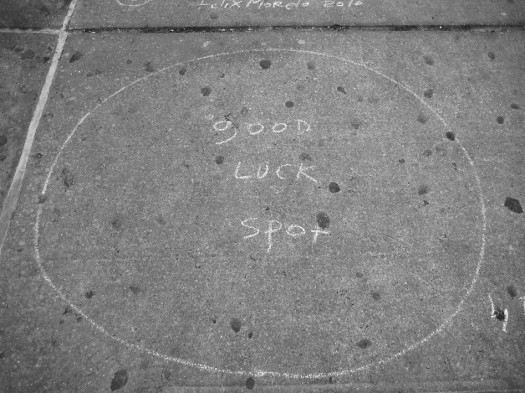 Felix Morelo 2010
good
LUCK
spot